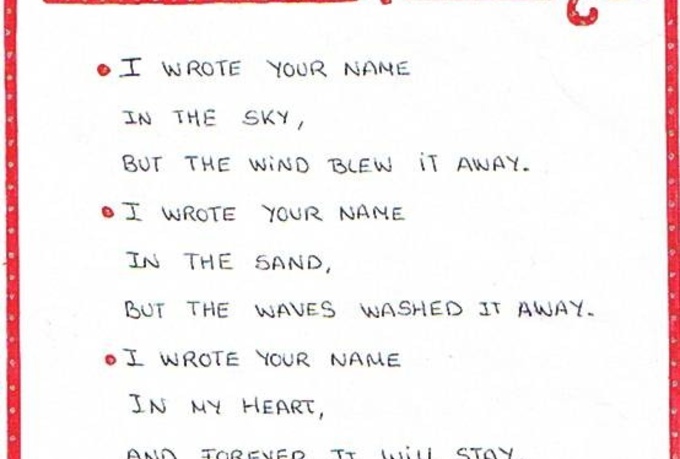 I WROTE YOUR NAME
IN THE SKY,
BUT THE WIND BLEW IT AWAY.
I WROTE YOUR NAME
IN THE SAND,
BUT THE WAVES WASHED IT AWAY.
I WROTE YOUR NAME
IN MY HEART,
AND FOREVER IT WILL STAY.